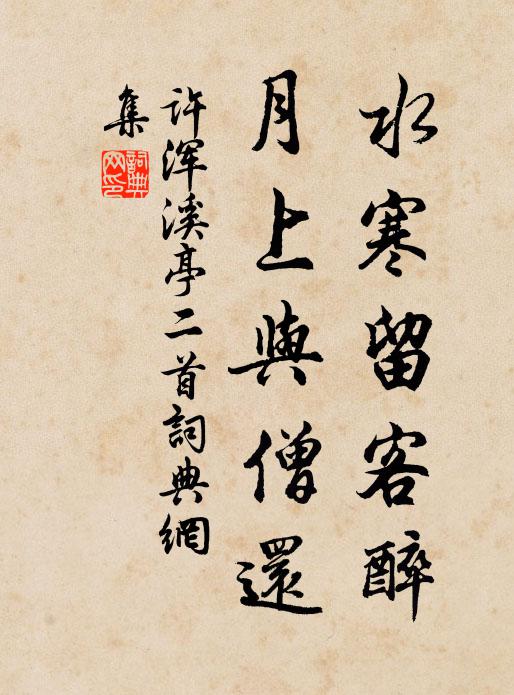 水寒留客醉
月上與僧還
許渾溪亭二首詞典網
集
詞典
网印